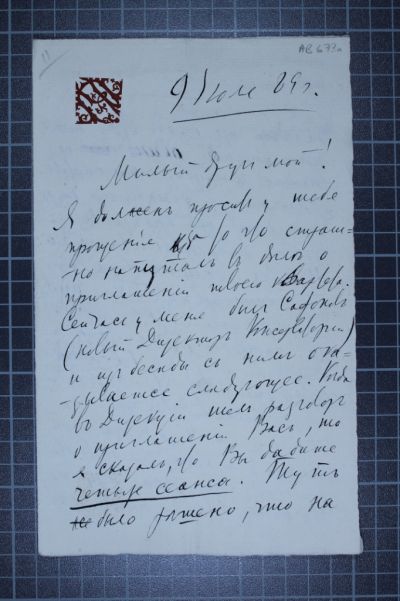 11
АВ 673а
9 Июля 89 г.
Милый друг мой!
Я должен просить у тебя
прощения в том что страш-
но напутал в деле о
приглашении твоего квартета.
Сейчас у меня был Сафонов
(новый Директор Консерватории)
и из беседы с ним ока-
зывается следующее. Когда
в Дирекции шел разговор
о приглашении Вас, то
я сказал, что Вы дадите
четыре сеанса. Тут
было решено, что на